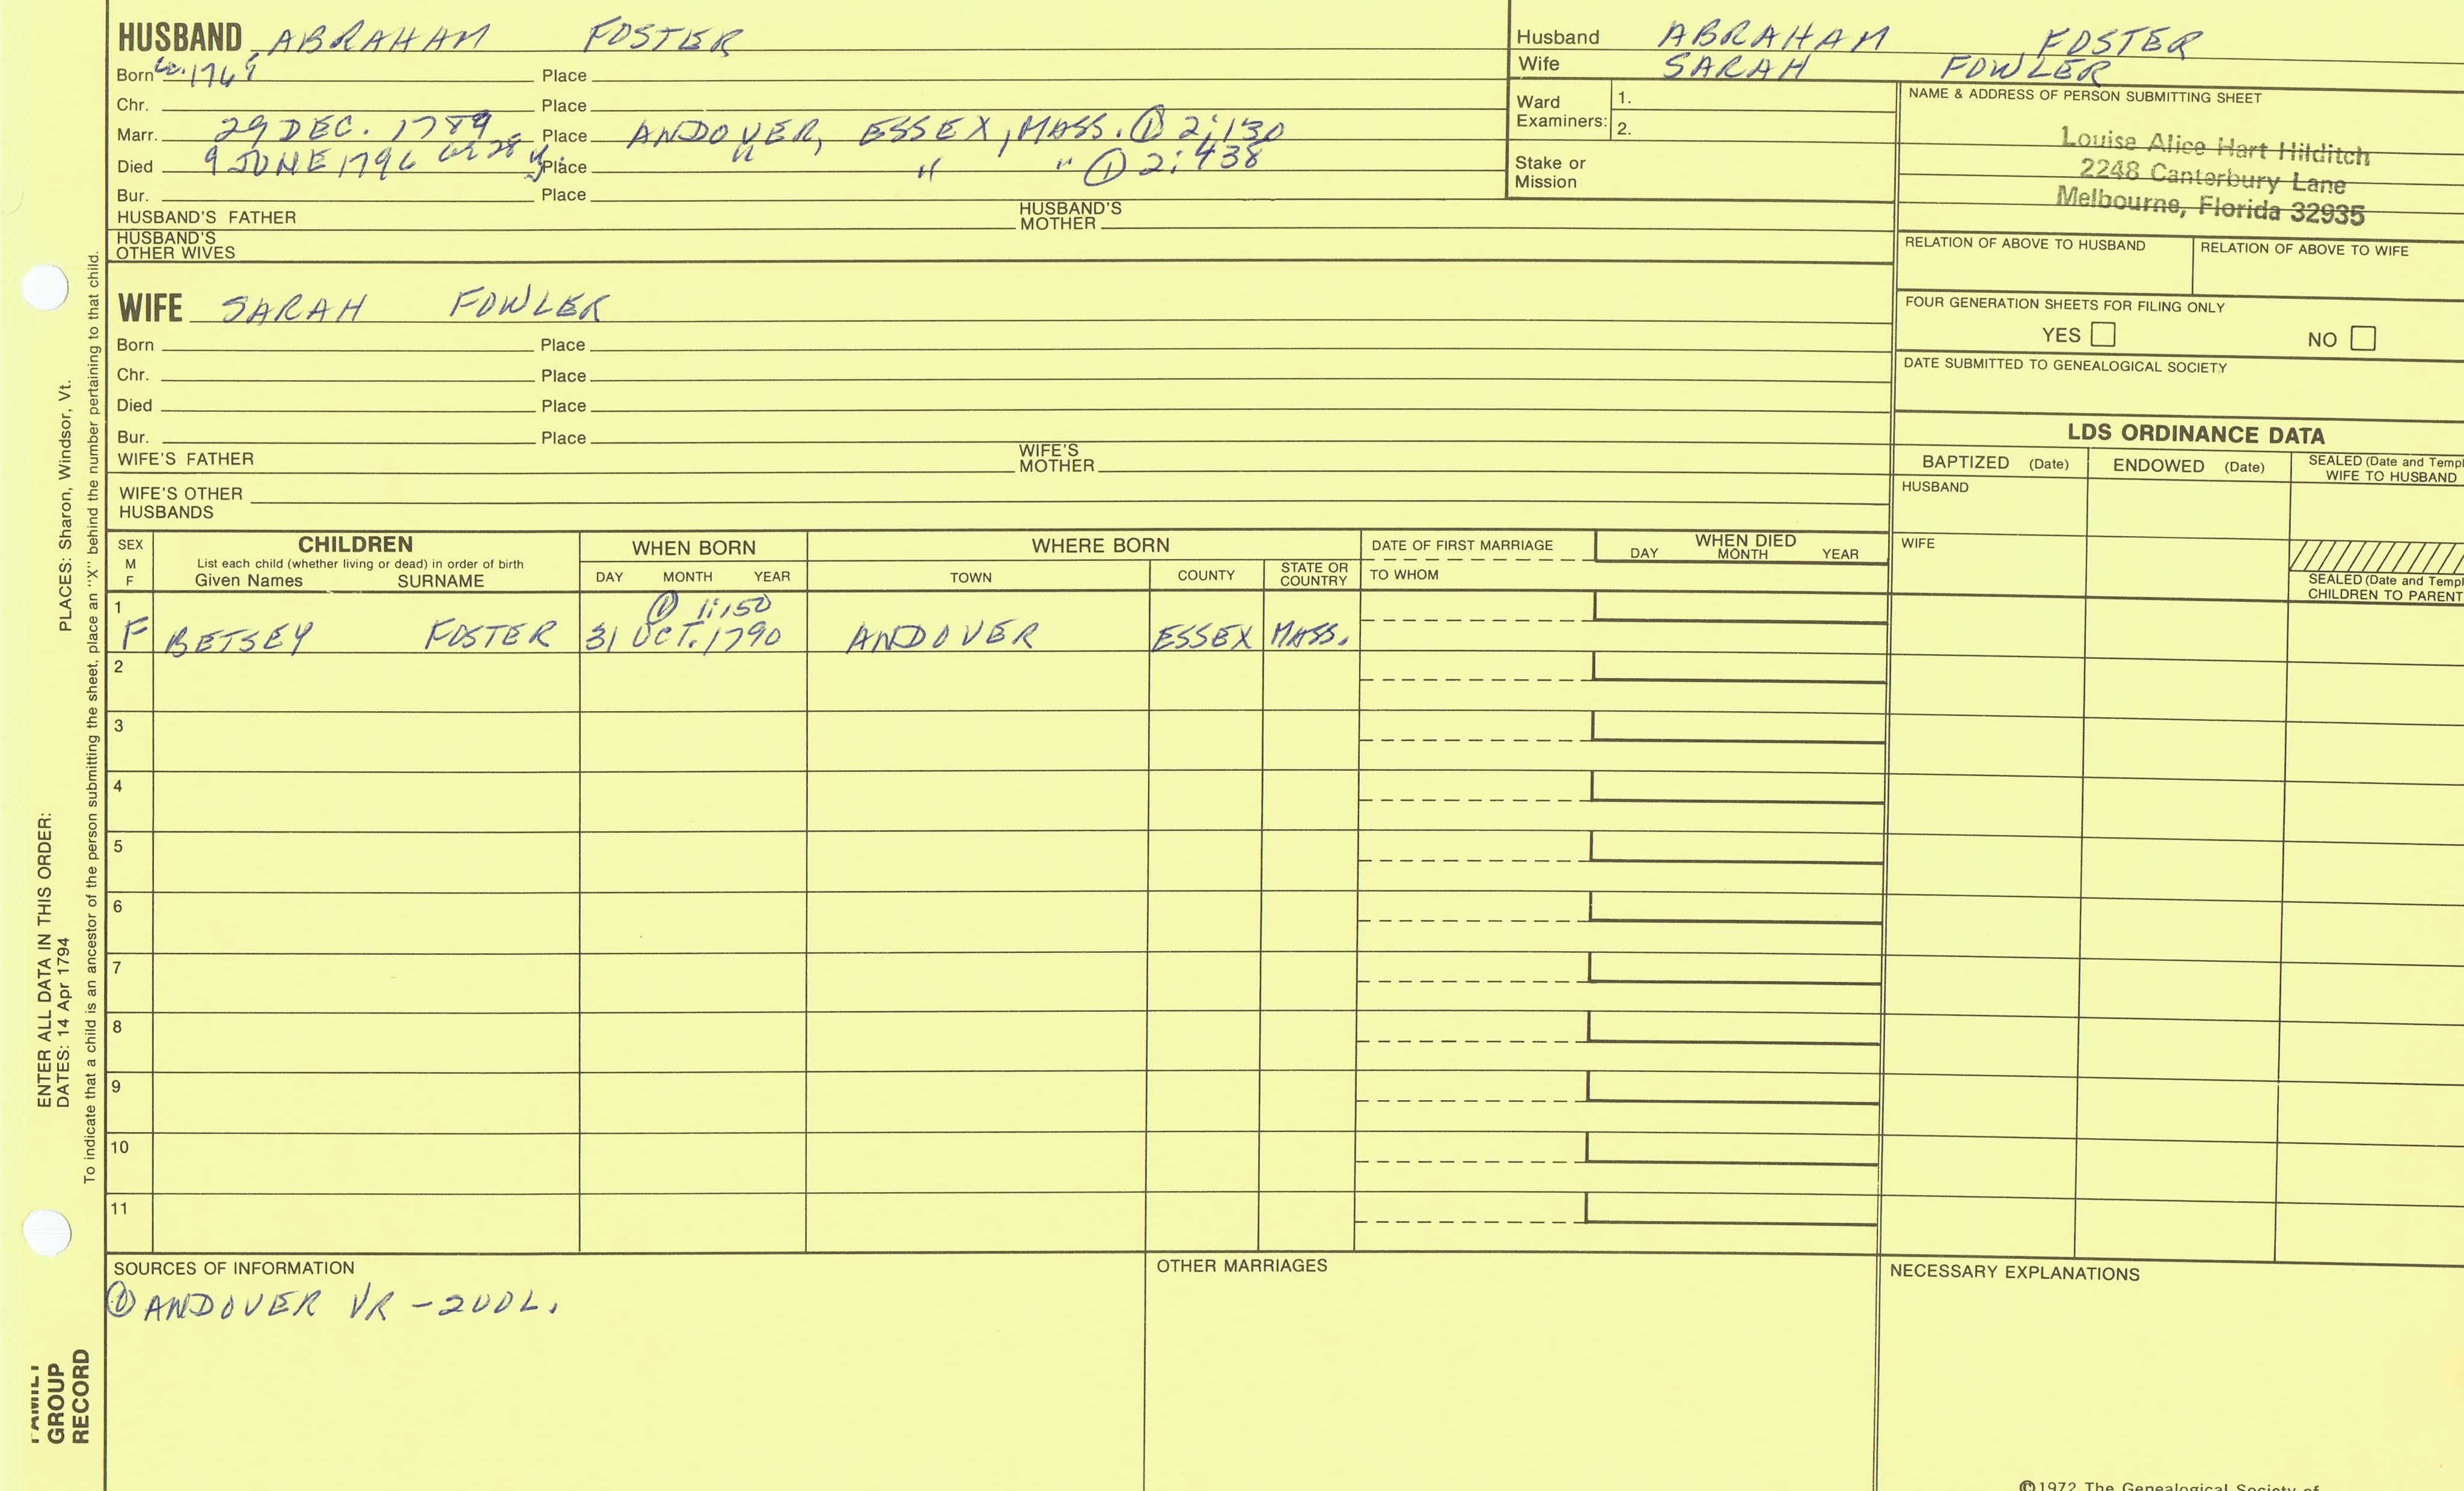 HUSBAND ABRAHAM FOSTER
Born 176 Place
Chr. Place
Marr. 29 DEC. 1789 Place ANDOVER, ESSEX, MASS. ① 2:130
Died 9 JUNE 1796 28 y. Place " " " ① 2:438
Bur. Place
HUSBAND'S FATHER HUSBAND'S MOTHER
HUSBAND'S OTHER WIVES
Husband ABRAHAM FOSTER
Wife SARAH FOWLER
Ward Examiners: 1.
2.
Stake or Mission
NAME & ADDRESS OF PERSON SUBMITTING SHEET
Louise Alice Hart Hilditch
2248 Canterbury Lane
Melbourne, Florida 32935
RELATION OF ABOVE TO HUSBAND RELATION OF ABOVE TO WIFE
WIFE SARAH FOWLER
Born Place
Chr. Place
Died Place
Bur. Place
WIFE'S FATHER WIFE'S MOTHER
WIFE'S OTHER HUSBANDS
FOUR GENERATION SHEETS FOR FILING ONLY
YES NO
DATE SUBMITTED TO GENEALOGICAL SOCIETY
LDS ORDINANCE DATA
BAPTIZED (Date) ENDOWED (Date) SEALED (Date and Templ
WIFE TO HUSBAND
HUSBAND
WIFE
SEALED (Date and Templ
CHILDREN TO PARENT
SEX M F CHILDREN WHEN BORN WHERE BORN DATE OF FIRST MARRIAGE WHEN DIED
List each child (whether living or dead) in order of birth
Given Names SURNAME DAY MONTH YEAR TOWN COUNTY STATE OR COUNTRY TO WHOM DAY MONTH YEAR
1 ① 1:150
F BETSEY FOSTER 31 OCT. 1790 ANDOVER ESSEX MASS.
2
3
4
5
6
7
8
9
10
11
SOURCES OF INFORMATION
① ANDOVER VR - 2VOL.
OTHER MARRIAGES
NECESSARY EXPLANATIONS
©1972 The Genealogical Society of
PLACES: Sharon, Windsor, Vt.
ENTER ALL DATA IN THIS ORDER:
DATES: 14 Apr 1794
To indicate that a child is an ancestor of the person submitting the sheet, place an "X" behind the number pertaining to that child.
FAMILY
GROUP
RECORD